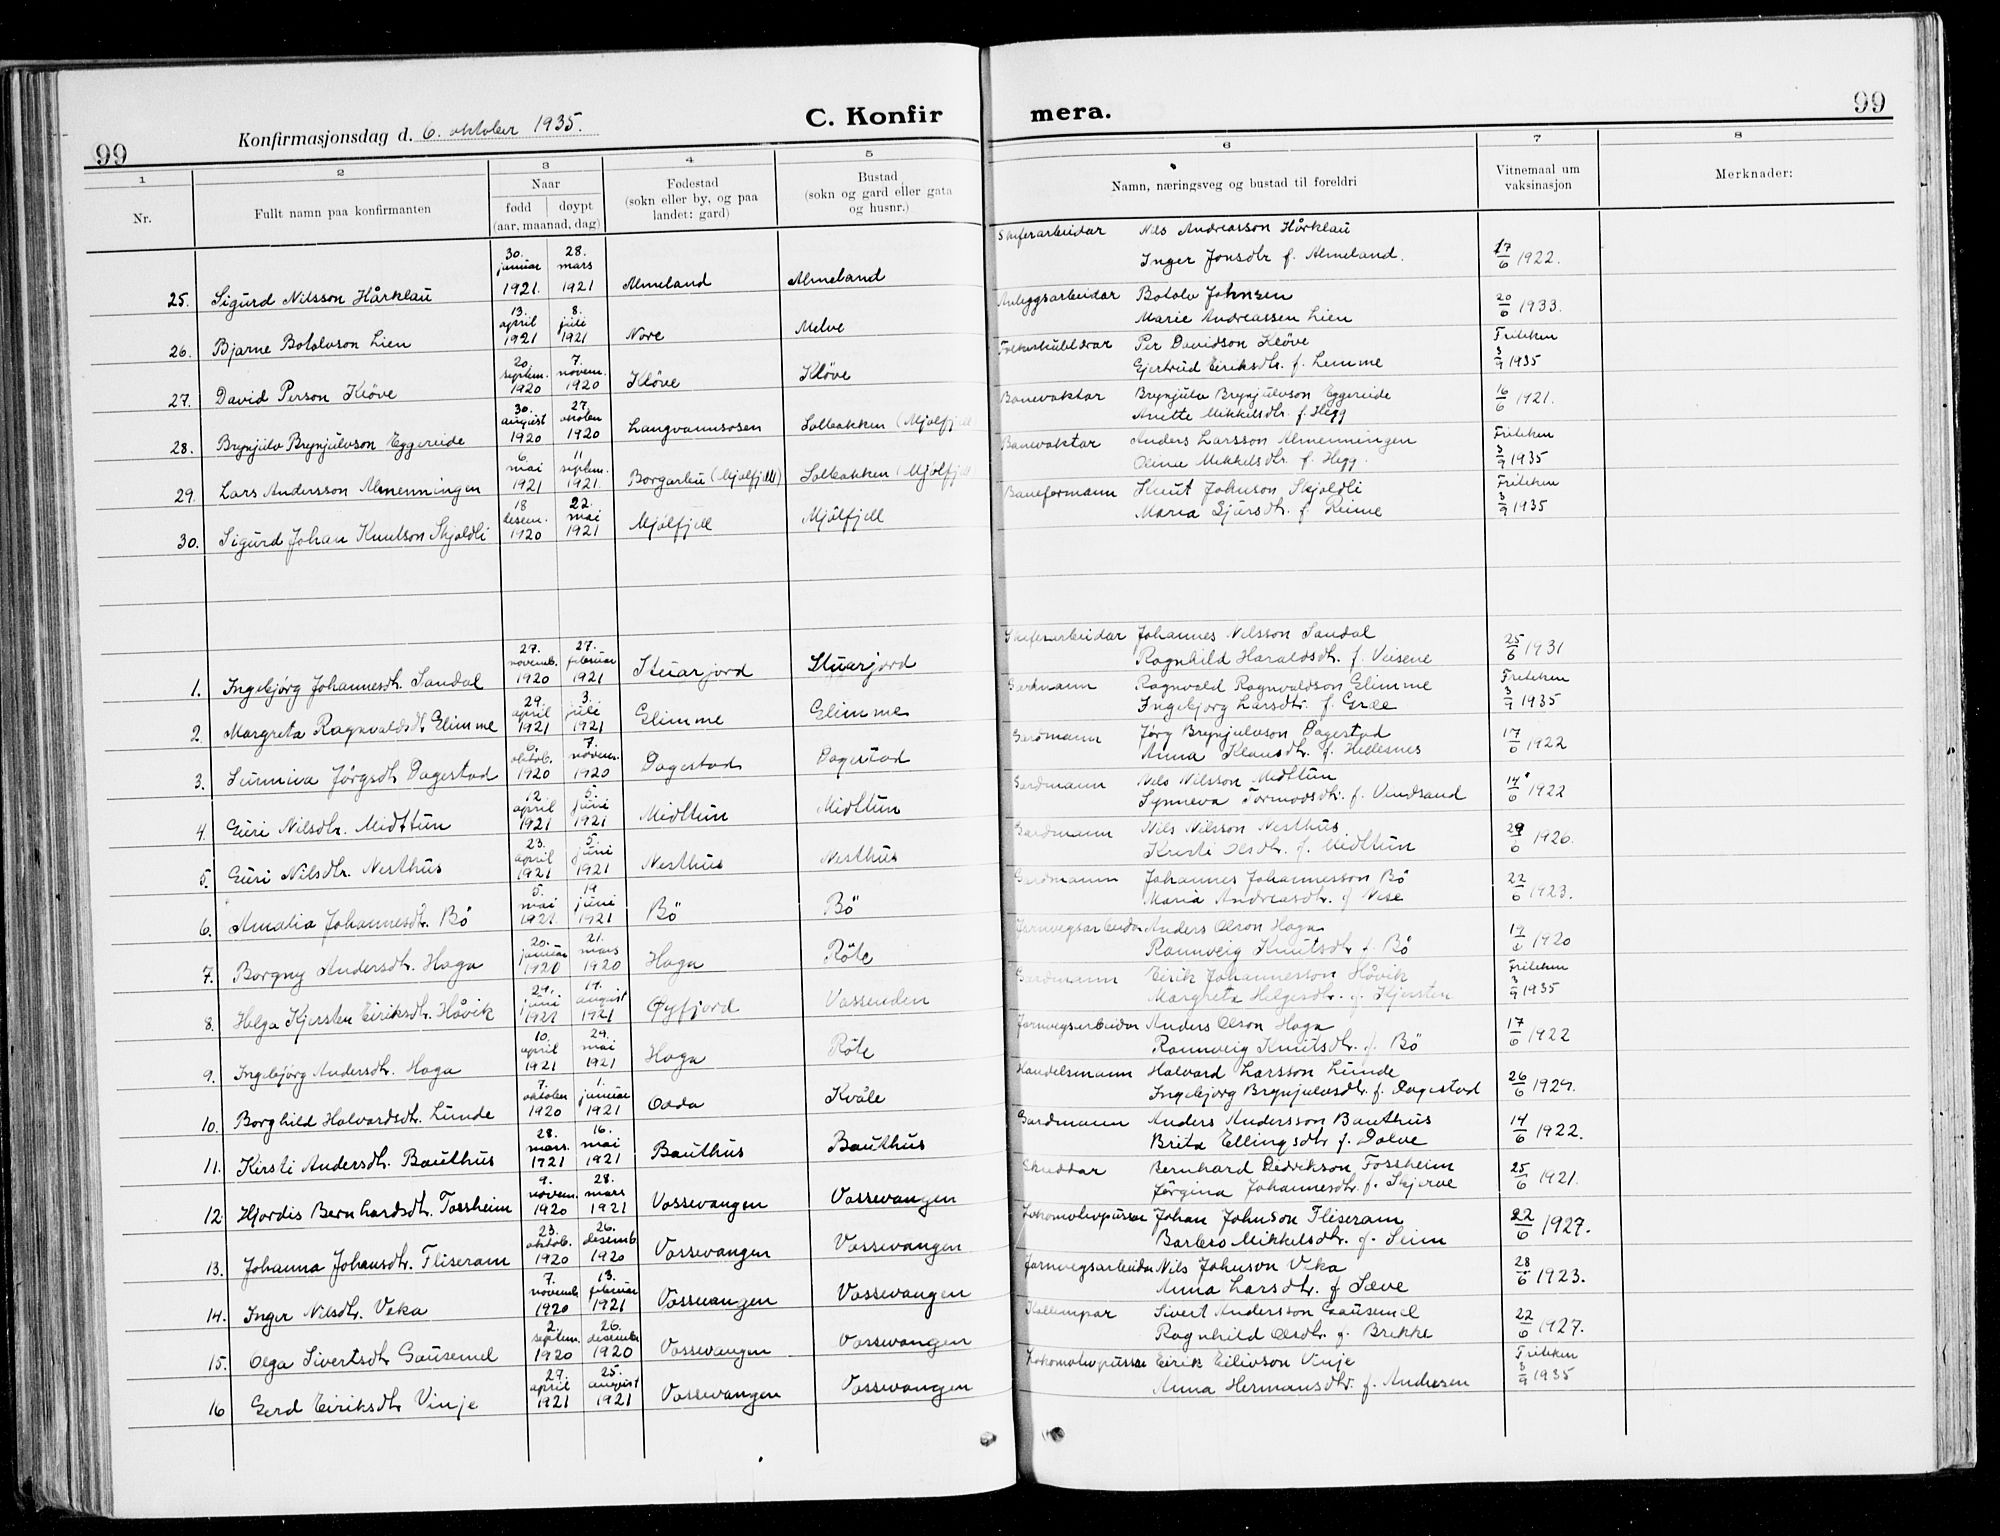 99
Konfirmasjonsdag d. 6. oktober 1935.
C. Konfir mera.
99
1 2 3 4 5 6 7 8
Nr.
Fullt namn paa konfirmanten
Naar
fødd døypt
(aar, maanad, dag)
Fødestad
(sokn eller by, og paa
landet: gard)
Bustad
(sokn og gard eller gata
og husnr.)
Namn, næringsveg og bustad til foreldri
Vitnemaal um
vaksinasjon
Merknader:
25. Sigurd Nilsson Hårklau 30. januar 1921. 28. mars 1921 Almeland Almeland Skiferarbeidar Nils Andreasson Hårklau
Inger Jonsdtr f. Almeland. 17/6 1922.
26. Bjarne Botolvson Lien 13. april 1921 8. juli 1921 Nore Melve Anleggsarbeidar Botolv Johnsen
Marie Andreassen Lien 20/6 1933.
27. David Person Kløve 20. septem. 1920 7. novem. 1920 Kløve Kløve Per Davidson Kløve
Gjertrud Eiriksdtr. f. Lemme Friteken 3/9 1935
28. Brynjulv Brynjulvson Eggereide 30. august 1920 27. oktober 1920 Langvannsosen Solbakken (Mjølfjell Banevaktar Brynjulv Brynjulvson Eggereide
Anette Mikkelsdtr. f. Hegg 16/6 1921.
29. Lars Andersson Almenningen 6. mai 1921 11 septem. 1921. Borgarleu (Mjølfjell) Solbakken (Mjølfjell Banevaktar Anders Larsson Almenningen
Oline Mikkelsdtr f. Hegg. Friteken 3/9 1935
30. Sigurd Johan Knutson Skjoldli 18 desem. 1920 22. mai 1921 Mjølfjell Mjølfjell Baneformann Knut Johnson Skjoldli
Maria Sjursdtr f. Reime Friteken 3/9 1935
1. Ingebjørg Johannesdtr. Sandal 27. novemb. 1920 27. februar 1921 Stuarjord Stuarjord Skiferarbeidar Johannes Nilsson Sandal
Ragnhild Haraldsdtr. f. Veisene 25/6 1931
2. Margreta Ragnvaldsdtr Glimme 29. april 1921 3. juli 1921 Glimme Glimme Gardmann Ragnvald Ragnvaldson Glimme
Ingebjørg Larsdtr. f. Græe Friteken 3/9 1935
3. Sunniva Jørgsdtr Dagestad 6. oktob. 1920 7. novem. 1920 Dagestad Dagestad Gardmann Jørg Brynjulvson Dagestad
Anna Klausdtr. f. Hellesnes 17/6 1922
4. Guri Nilsdtr. Midttun 12. april 1921 5. juni 1921 Midttun Midttun Gardmann Nils Nilsson Midttun
Synneva Tormodsdtr. f. Vindsand 14/6 1922
5. Guri Nilsdtr. Nesthus 23. april 1921 5. juni 1921 Nesthus Nesthus Gardmann Nils Nilsson Nesthus.
Kristi Olsdtr. f. Midttun 29/6 1926.
6. Amalia Johannesdtr. Bö 5. mai 1921. 19 juni 1921 Bö Bö Gardmann Johannes Johannesson Bö
Maria Andreasdtr. f Nese 22/6 1923.
7. Borgny Andersdtr. Haga 20. januar 1920 21. mars 1920 Haga Röte Jarnvegsarbeidar Anders Olson Haga
Rannveig Knutsdtr f. Bö 19/6 1920
8. Helga Kjersten Eiriksdtr. Håvik 29. juni 1921 14. august 1921 Øyfjord Vassenden Gardmann Eirik Johannesson Håvik
Margreta Helgesdtr. f. Kjersten Friteken 3/9 1935
9. Ingebjørg Andersdtr. Haga 10. april 1921 29. mai 1921 Haga Röte Jarnvegsarbeidar Anders Olson Haga
Rannveig Knutsdtr. f. Bö 17/6 1922
10. Borghild Halvardsdtr. Lunde 7. oktober 1920 1. januar 1921 Odda Kvåle Handelsmann Halvard Larsson Lunde
Ingebjørg Brynjulvsdtr. f. Dagestad 26/6 1924.
11. Kirsti Andersdtr. Bauthus 28. mars. 1921 16. mai 1921 Bauthus Bauthus Gardmann Anders Andersson Bauthus
Brita Ellingsdtr f. Dolve 14/6 1922.
12. Hjordis Bernhardsdtr. Fossheim 9. novem. 1920 28. mars 1921 Vossevangen Vossevangen Skreddar Bernhard Didrikson Fossheim
Jørgina Johannesdtr. f. Skjerve 25/6 1921.
13. Johanna Johansdtr. Fliseram 23. oktob. 1920 26. desemb. 1920 Vossevangen Vossevangen Lokomotivpussar Johan Johnson Fliseram
Barbro Mikkelsdtr. f. Seim 22/6 1927.
14. Inger Nilsdtr. Veka 7. novemb. 1920 13. februar 1921 Vossevangen Vossevangen Jarnvegsarbeidar Nils Johnson Veka
Anna Larsdtr. f Sæve 28/6 1923.
15. Olga Sivertsdtr Gausemel 2. septem. 1920 26. desember 1920 Vossevangen Vossevangen Kullempar Sivert Andersson Gausemel
Ragnhild Olsdtr. f. Brekke 22/6 1927.
16 Gerd Eiriksdtr Vinje 27. april 1921 25. august 1921 Vossevangen Vossevangen Lokomotivpussar Eirik Eilivson Vinje
Anna Hermansdtr. f. Andresen Friteken 3/9 1935